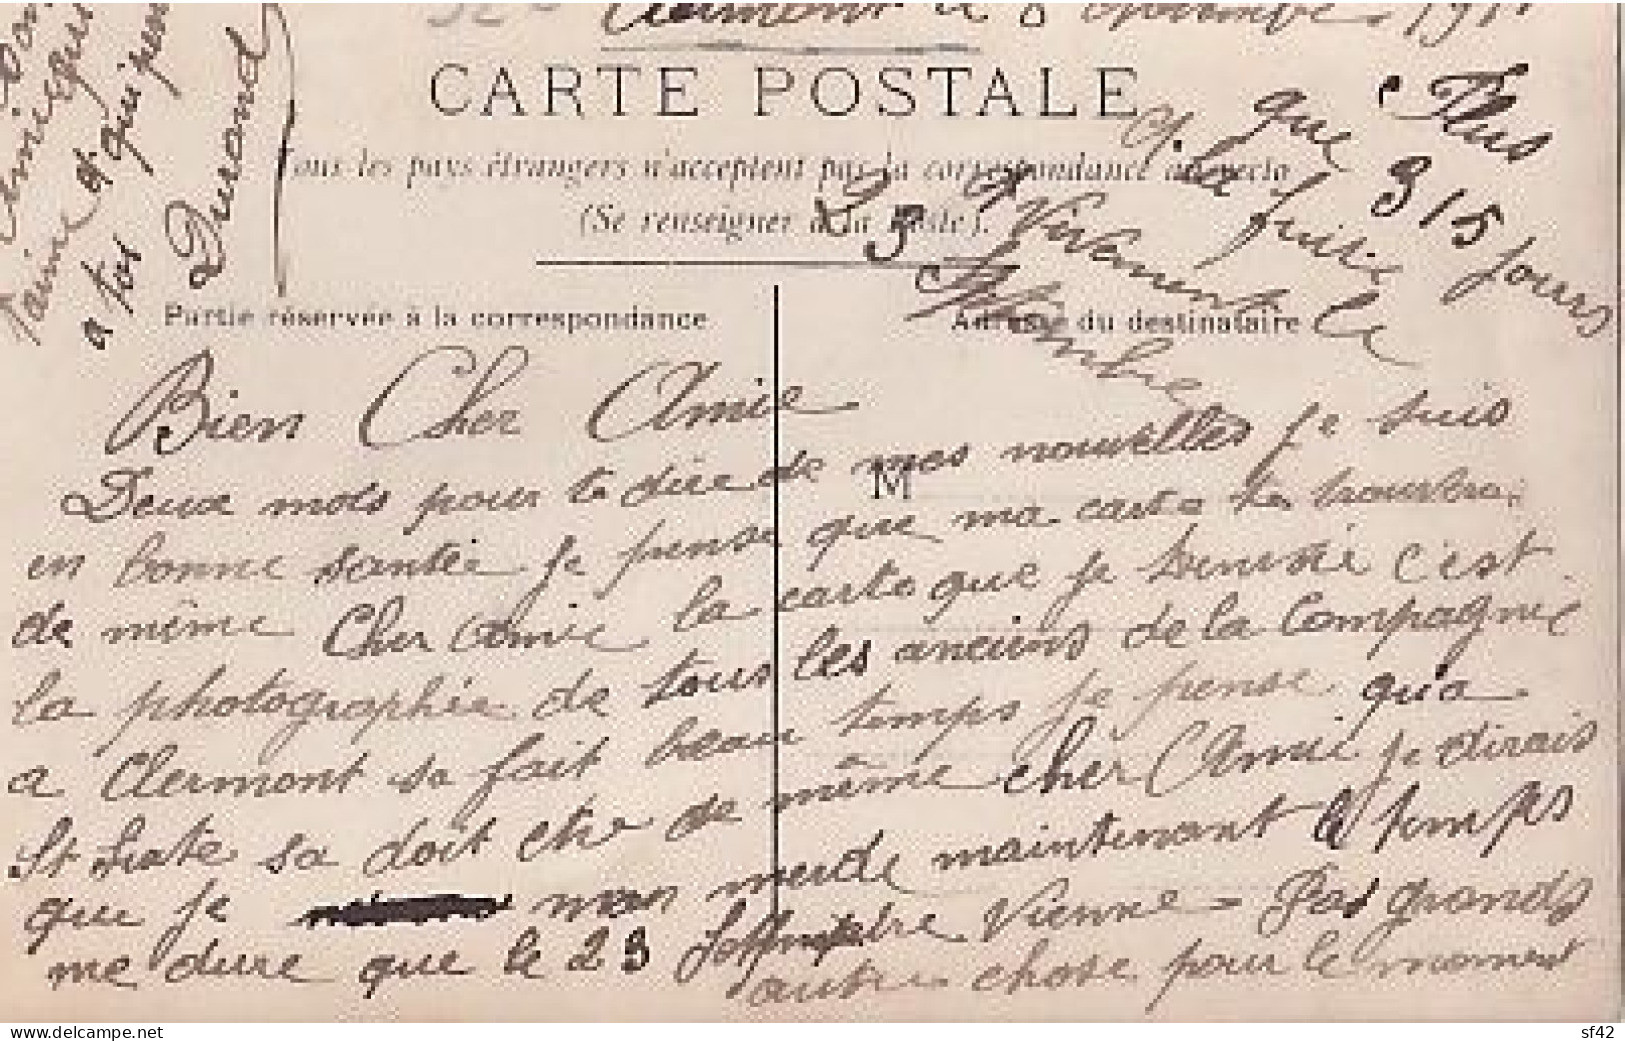 Clermont le 8 Novembre 191
CARTE POSTALE
Tous les pays étrangers n'acceptent pas la correspondance au recto
(Se renseigner à la Poste).
Partie réservée à la correspondance
Adresse du destinataire
M
Plus
que 315 jours
et la fuite
et Vivement le
23 Septembre
Bien Cher Amie
Deux mots pour te dire de mes nouvelles je suis
en bonne santie je pense que ma carte te trouvera
de même Cher Amie la carte que je t'envoie c'est
la photographie de tous les anciens de la Compagnie
a Clermont sa fait beau temps je pense qu'a
St sa doit etre de même cher Amie je dirais
que je men merde maintenant le temps
me dure que le 23 Septembre Vienne Pas grands
autre chose pour le moment
amie qui
t'aime et qui pense
a toi
Durand
sf42